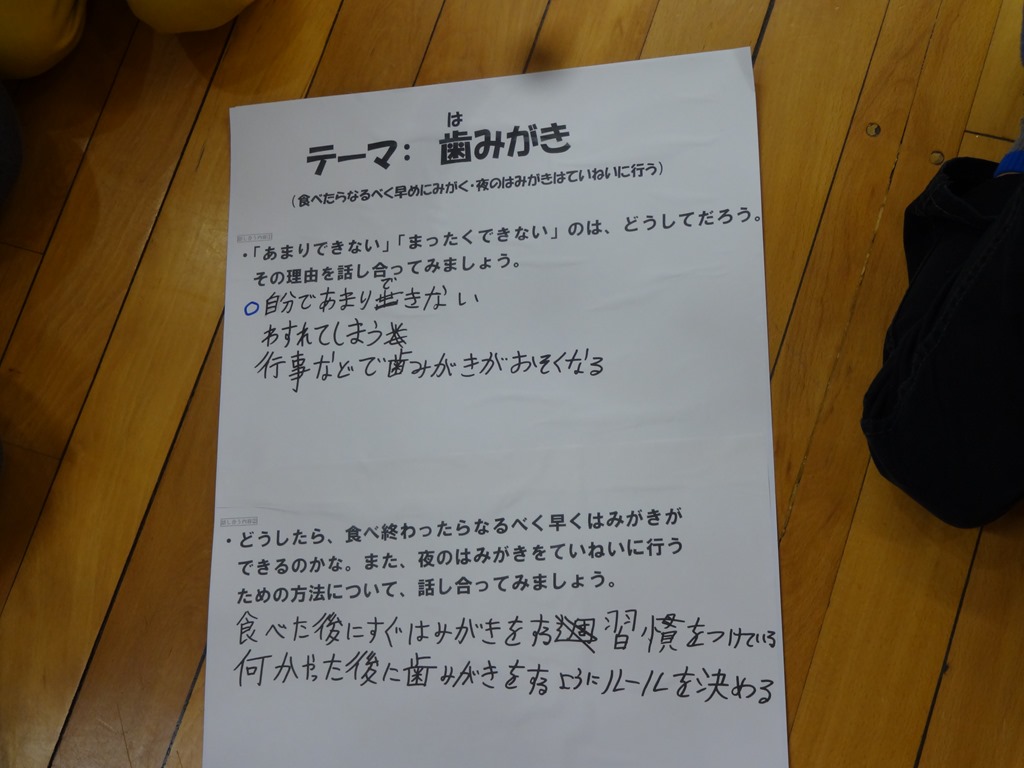 は
テーマ: 歯みがき
(食べたらなるべく早めにみがく・夜のはみがきはていねいに行う)
・「あまりできない」「まったくできない」のは、どうしてだろう。
その理由を話し合ってみましょう。
○自分であまりできない
わすれてしまう
行事などで歯みがきがおそくなる
・どうしたら、食べ終わったらなるべく早くはみがきが
できるのかな。また、夜のはみがきをていねいに行う
ための方法について、話し合ってみましょう。
食べた後にすぐはみがきをする習慣をつけている
何かやった後に歯みがきをするようにルールを決める